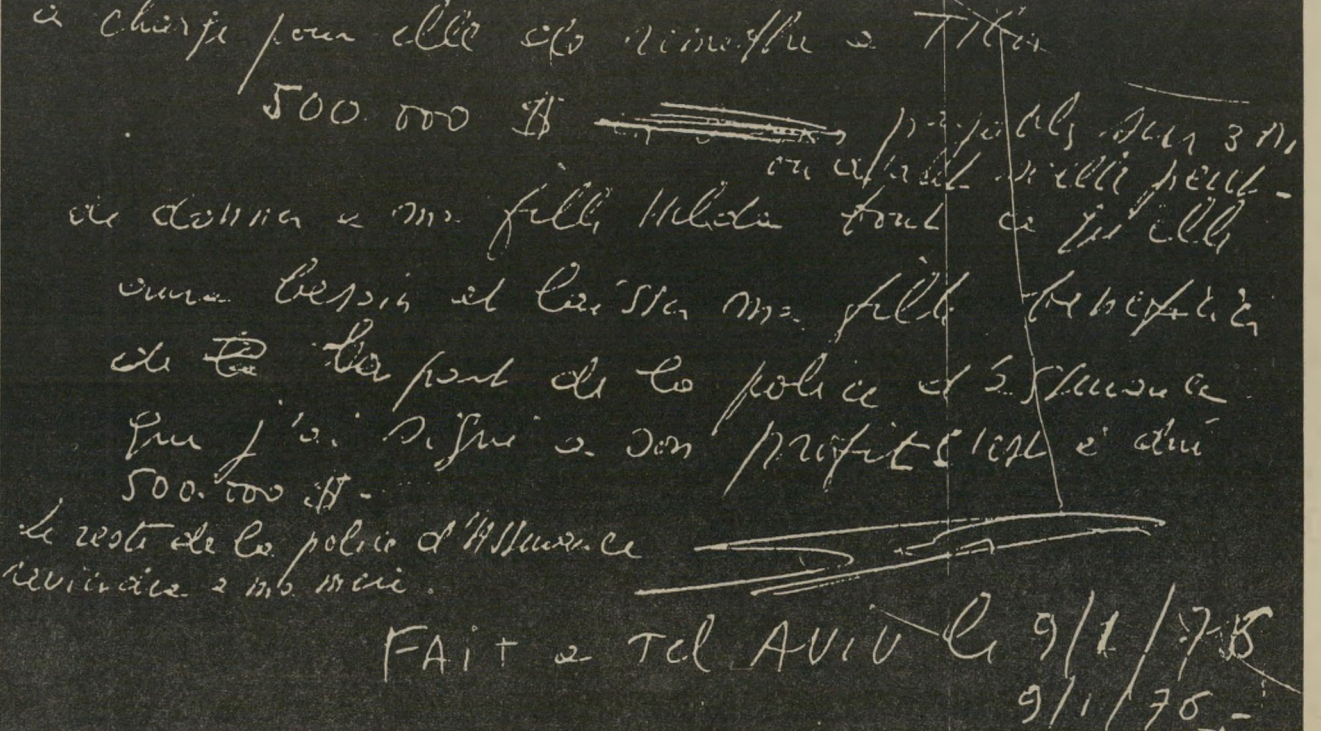 a charge pour elle de remettre a
500.000 $ payable sur 3
ou avant si elle peut -
de donner a ma fille Hilda tout ce qu'elle
aura besoin et laisser ma fille beneficier
de la part de la police d'assurance
que j'ai signé a son profit c'est a dire
500.000 $ -
le reste de la police d'Assurance
reviendra a ma mere.
FAIT a Tel AVIV le 9/1/76
9/1/76 -